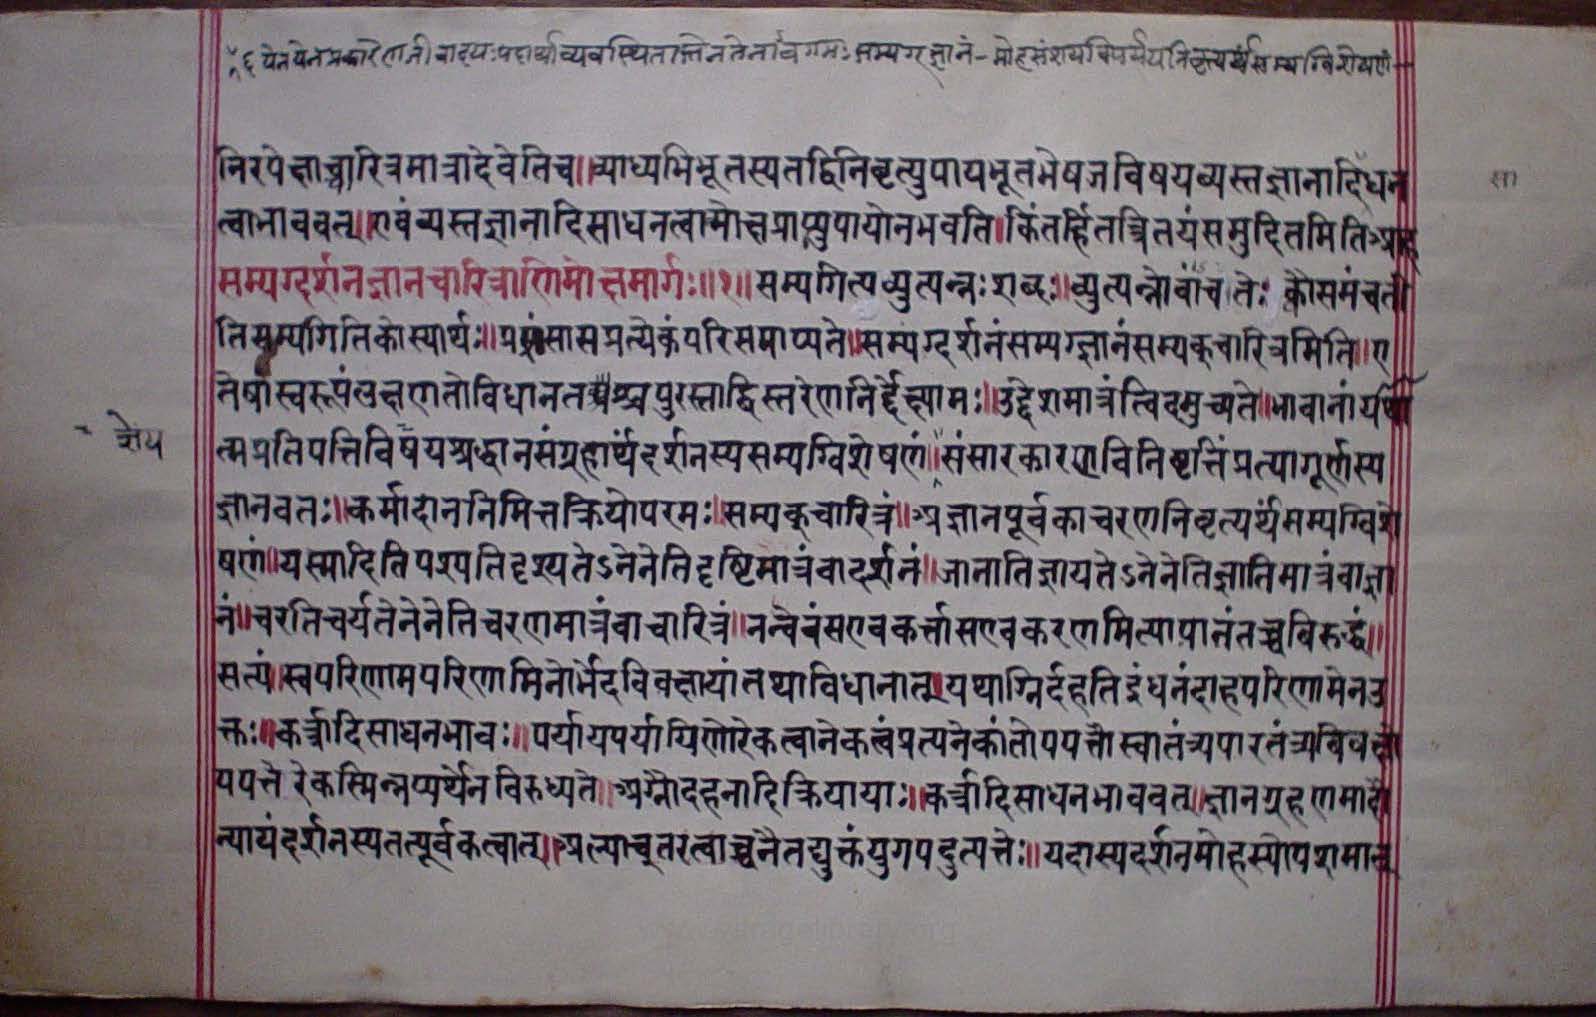 येन येन प्रकारेण जीवादयः पदार्था व्यवस्थितास्तेन तेनावगमः सम्यग्ज्ञानं-मोहसंशयविपर्ययनिवृत्यर्थं सम्यग्विशेषणं
निरपेक्षाच्चारित्रमात्रादेवेतिच॥व्याध्यभिभूतस्यतद्विनिवृत्युपायभूतभेषजविषयव्यस्तज्ञानादिधन
सा
त्वाभाववत्॥एवंव्यस्तज्ञानादिसाधनत्वान्मोक्षप्राप्त्युपायोनभवति॥किंतर्हितत्त्रितयंसमुदितमितिआह
सम्यग्दर्शनज्ञानचारित्राणिमोक्षमार्गः॥१॥सम्यगित्यव्युत्पन्नःशब्दः॥व्युत्पन्नोवांचतेः क्वौसमंचती
तिसम्यगितिकोस्यार्थः॥प्रशंसासप्रत्येकंपरिसमाप्यते॥सम्यग्दर्शनंसम्यग्ज्ञानंसम्यक्चारित्रमिति॥ए
तेषांस्वरूपंलक्षणतोविधानतश्चपुरस्ताद्विस्तरेणनिर्द्देक्ष्यामः॥उद्देशमात्रंत्विदमुच्यते॥भावानांयथा
ज्ञेय
त्मप्रतिपत्तिविषयश्रद्धानसंग्रहार्थंदर्शनस्यसम्यग्विशेषणं॥संसारकारणविनिवृत्तिंप्रत्यागूर्णस्य
ज्ञानवतः॥कर्मादाननिमित्तक्रियोपरमः॥सम्यक्चारित्रं॥अज्ञानपूर्वकाचरणनिवृत्यर्थंसम्यग्विशे
षणं॥यस्मादितिपश्यतिदृश्यतेऽनेनेतिदृष्टिमात्रंवादर्शनं॥जानातिज्ञायतेऽनेनेतिज्ञातिमात्रंवाज्ञा
नं॥चरतिचर्यतेनेनेतिचरणमात्रंवाचारित्रं॥नन्वेवंसएवकर्त्तासएवकरणमित्यायातंतच्चविरुद्धं॥
सत्यं॥स्वपरिणामपरिणामिनोर्भेदविवक्षायांतथाविधानात्॥यथाग्निर्दहतिइंधनंदाहपरिणामेनउ
क्तः॥कर्त्रादिसाधनभावः॥पर्यायपर्यायिणोरेकत्वानेकत्वंप्रत्यनेकांतोपपत्तौस्वातंत्र्यपारतंत्र्यविवक्षो
पपत्ते रेकस्मिन्नप्यर्थेनविरुध्यते॥अग्नौदहनादिक्रियायाः॥कर्त्रादिसाधनभाववत्॥ज्ञानग्रहणमादौ
न्यायंदर्शनस्यतत्पूर्वकत्वात्॥अल्पाच्तरत्वाच्चनैतद्युक्तंयुगपदुत्पत्तेः॥यदास्यदर्शनमोहस्योपशमात्